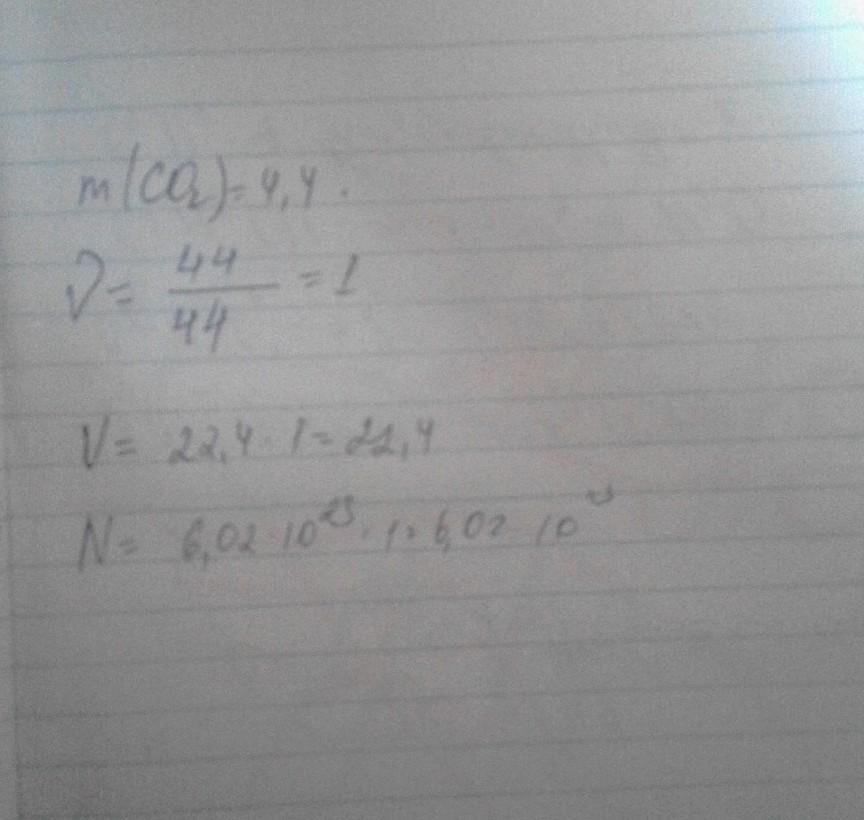 m(CO₂)=4,4.
ν= 44/44 =1
V= 22,4·1=22,4
N= 6,02·10²³·1=6,02·10²³